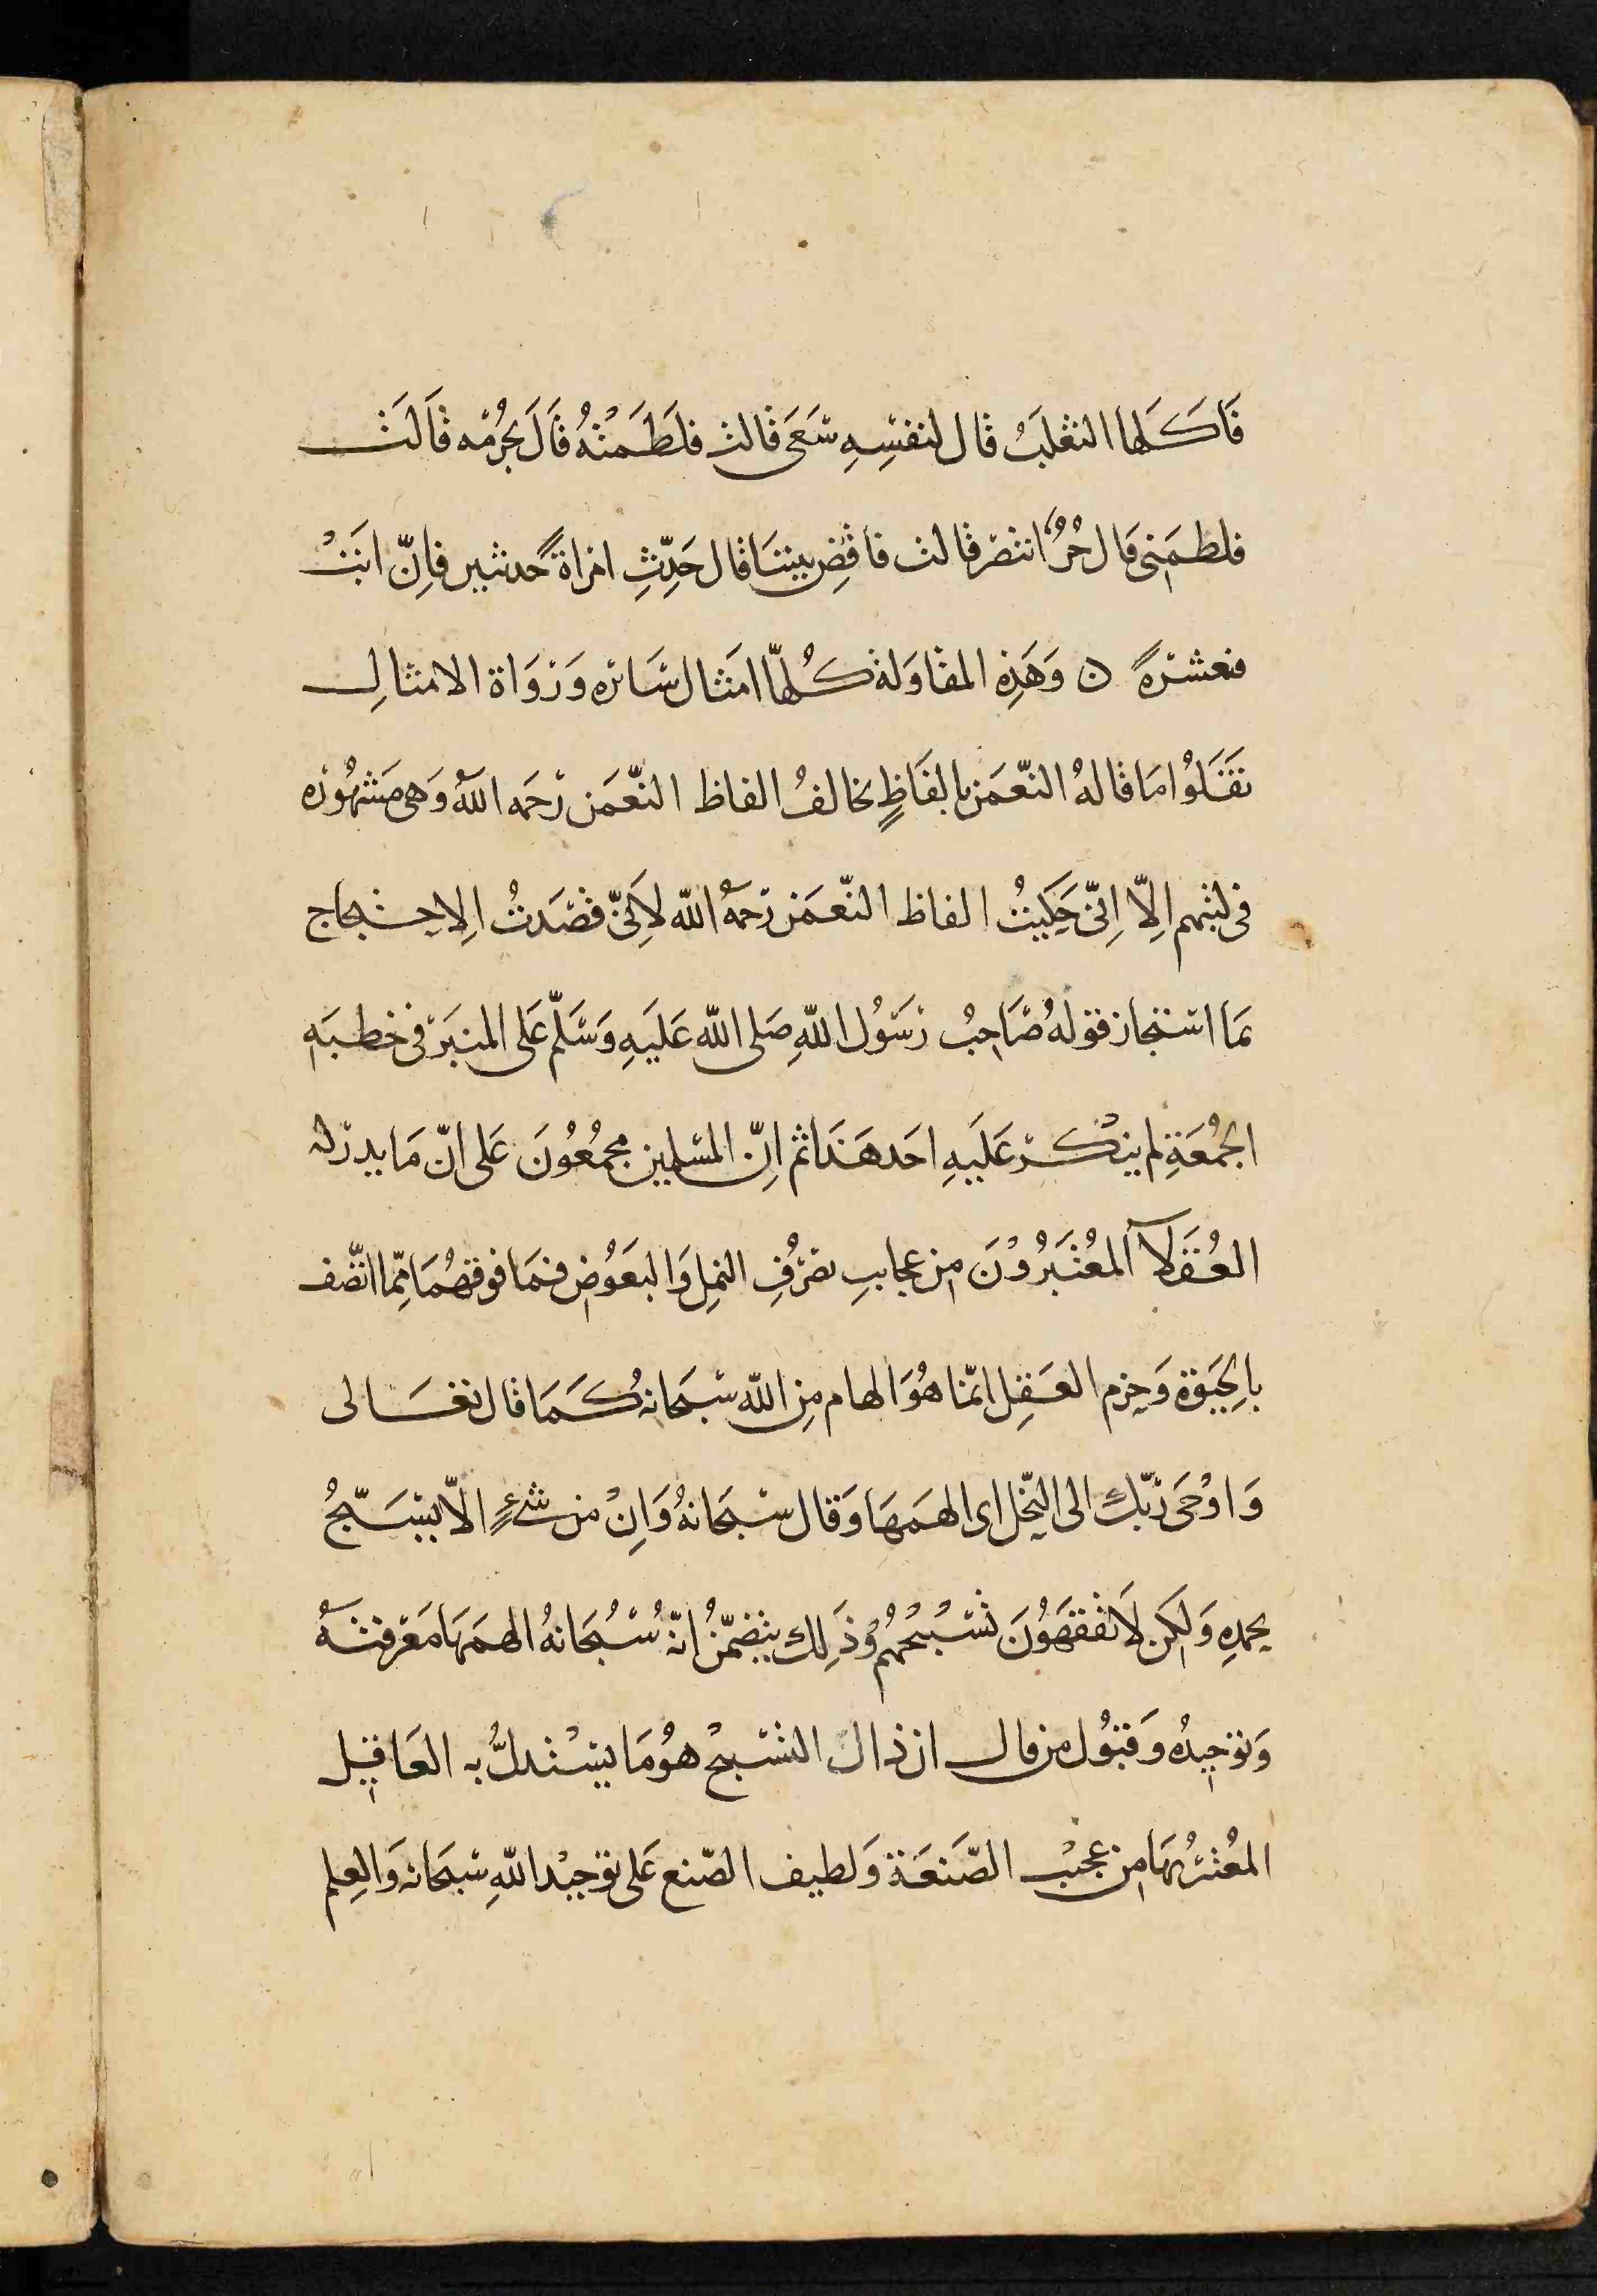 فَاَكَلها الثعْلبُ قال لنفسِهِ سَعَى قالت فلَطَمتْهُ قَالَ بجُرْمه قَالَت
فلطمَنِى قال حُرٌّ انتصر قالت فاقضِ بينَنا قال حَدِّثِ امراةً حديثين فاِنّ ابَتْ
فعشرَةً ن وَهَذِه المقاوَلة كُلهّا امثال سَائره وَرُوَاة الامثالِ
نقَلوُا مَا قالهُ النّعمَن بالفَاظٍ تخالفُ الفاظ النّعمَن رَحمَه اللهُ وَهى مَشهُورَه
فى كتبهم اِلّا اِنّى حَكيتُ الفاظ النّعمَن رَحمهُ الله لاَنّى قصَدتُ اِلاحتجاج
بمَا استجاز قوله صَاحِبُ رَسُول اللهِ صَلى الله عَليَهِ وَسَلمّ عَلى المنبَر فى خطبَه
الجمُعَةِ لم ينكر عَلَيهِ احَد هَذا ثم اِنّ المسْلمِين مجمعُونَ عَلى انّ مَا يدركه
العُقَلآ المعُتَبَروُنَ مِن عجايبِ تصَرّفِ النملِ وَالبعَوُضِ فمَا فوقهُمَا مِمّا اتّصف
بالحِيَوة وَحِزم العَقِل انّما هُوَ الهام مِن الله سُبحَانهُ كَمَا قال تعَالى
وَاوْحَى رَبّك الى النّحل اى الهمَهَا وَقال سُبحَانهُ وَاِنْ من شْىءٍ الّا يسَبّحُ
بحمدِه وَلكِن لَا تفقهَوُنَ تَسْبيْحَهُم وُذَلِك يتضَمّنُ انّهُ سُبُحَانهُ الهمَهَا مَعْرفتَهُ
وَتوحِيدُه وَقبُول من قال ان ذاك التسْبيْحَ هوُ مَا يسْتدلُّ به العَاقِل
المعُتبرُ بهَا مِن عجيْب الصّنَعَة وَلطيف الصّنع عَلى توحِيْد اللهِ سُبحَانه وَالعِلم